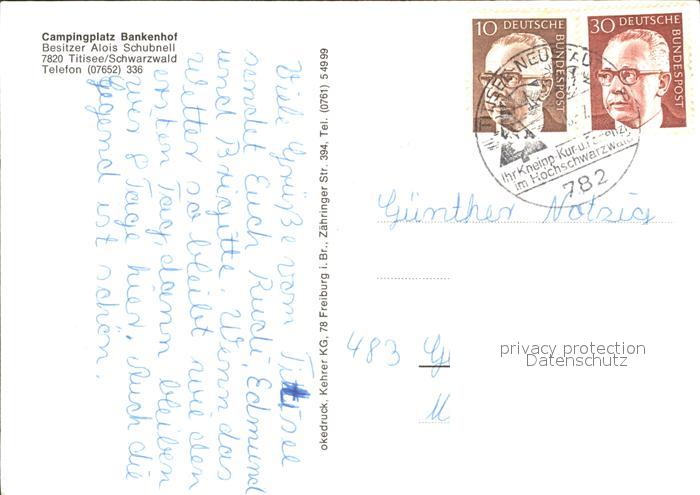 Campingplatz Bankenhof
Besitzer Alois Schubnell
7820 Titisee/Schwarzwald
Telefon (07652) 336
Viele Grüße vom Titisee
sendet Euch Rudi, Edmund
und Brigitte. Wenn das
Wetter so bleibt wie den
ersten Tag, dann bleiben
wir 8 Tage hier. Auch die
Gegend ist schön.
okedruck, Kehrer KG, 78 Freiburg i. Br., Zähringer Str. 394, Tel. (0761) 5 49 99
10 DEUTSCHE BUNDESPOST
30 DEUTSCHE BUNDESPOST
TITISEE-NEUSTADT
Ihr Kneipp-Kur-u.
im Hochschwarzwald
782
Günther Notzig
483 G
M
privacy protection
Datenschutz